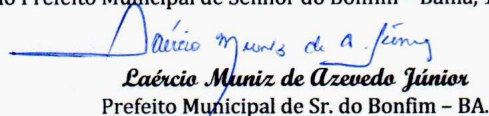 Prefeito Municipal de Senhor do Bonfim – Bahia, 1
Laércio Muniz de A. Júnior
Laércio Muniz de Azevedo Júnior
Prefeito Municipal de Sr. do Bonfim – BA.